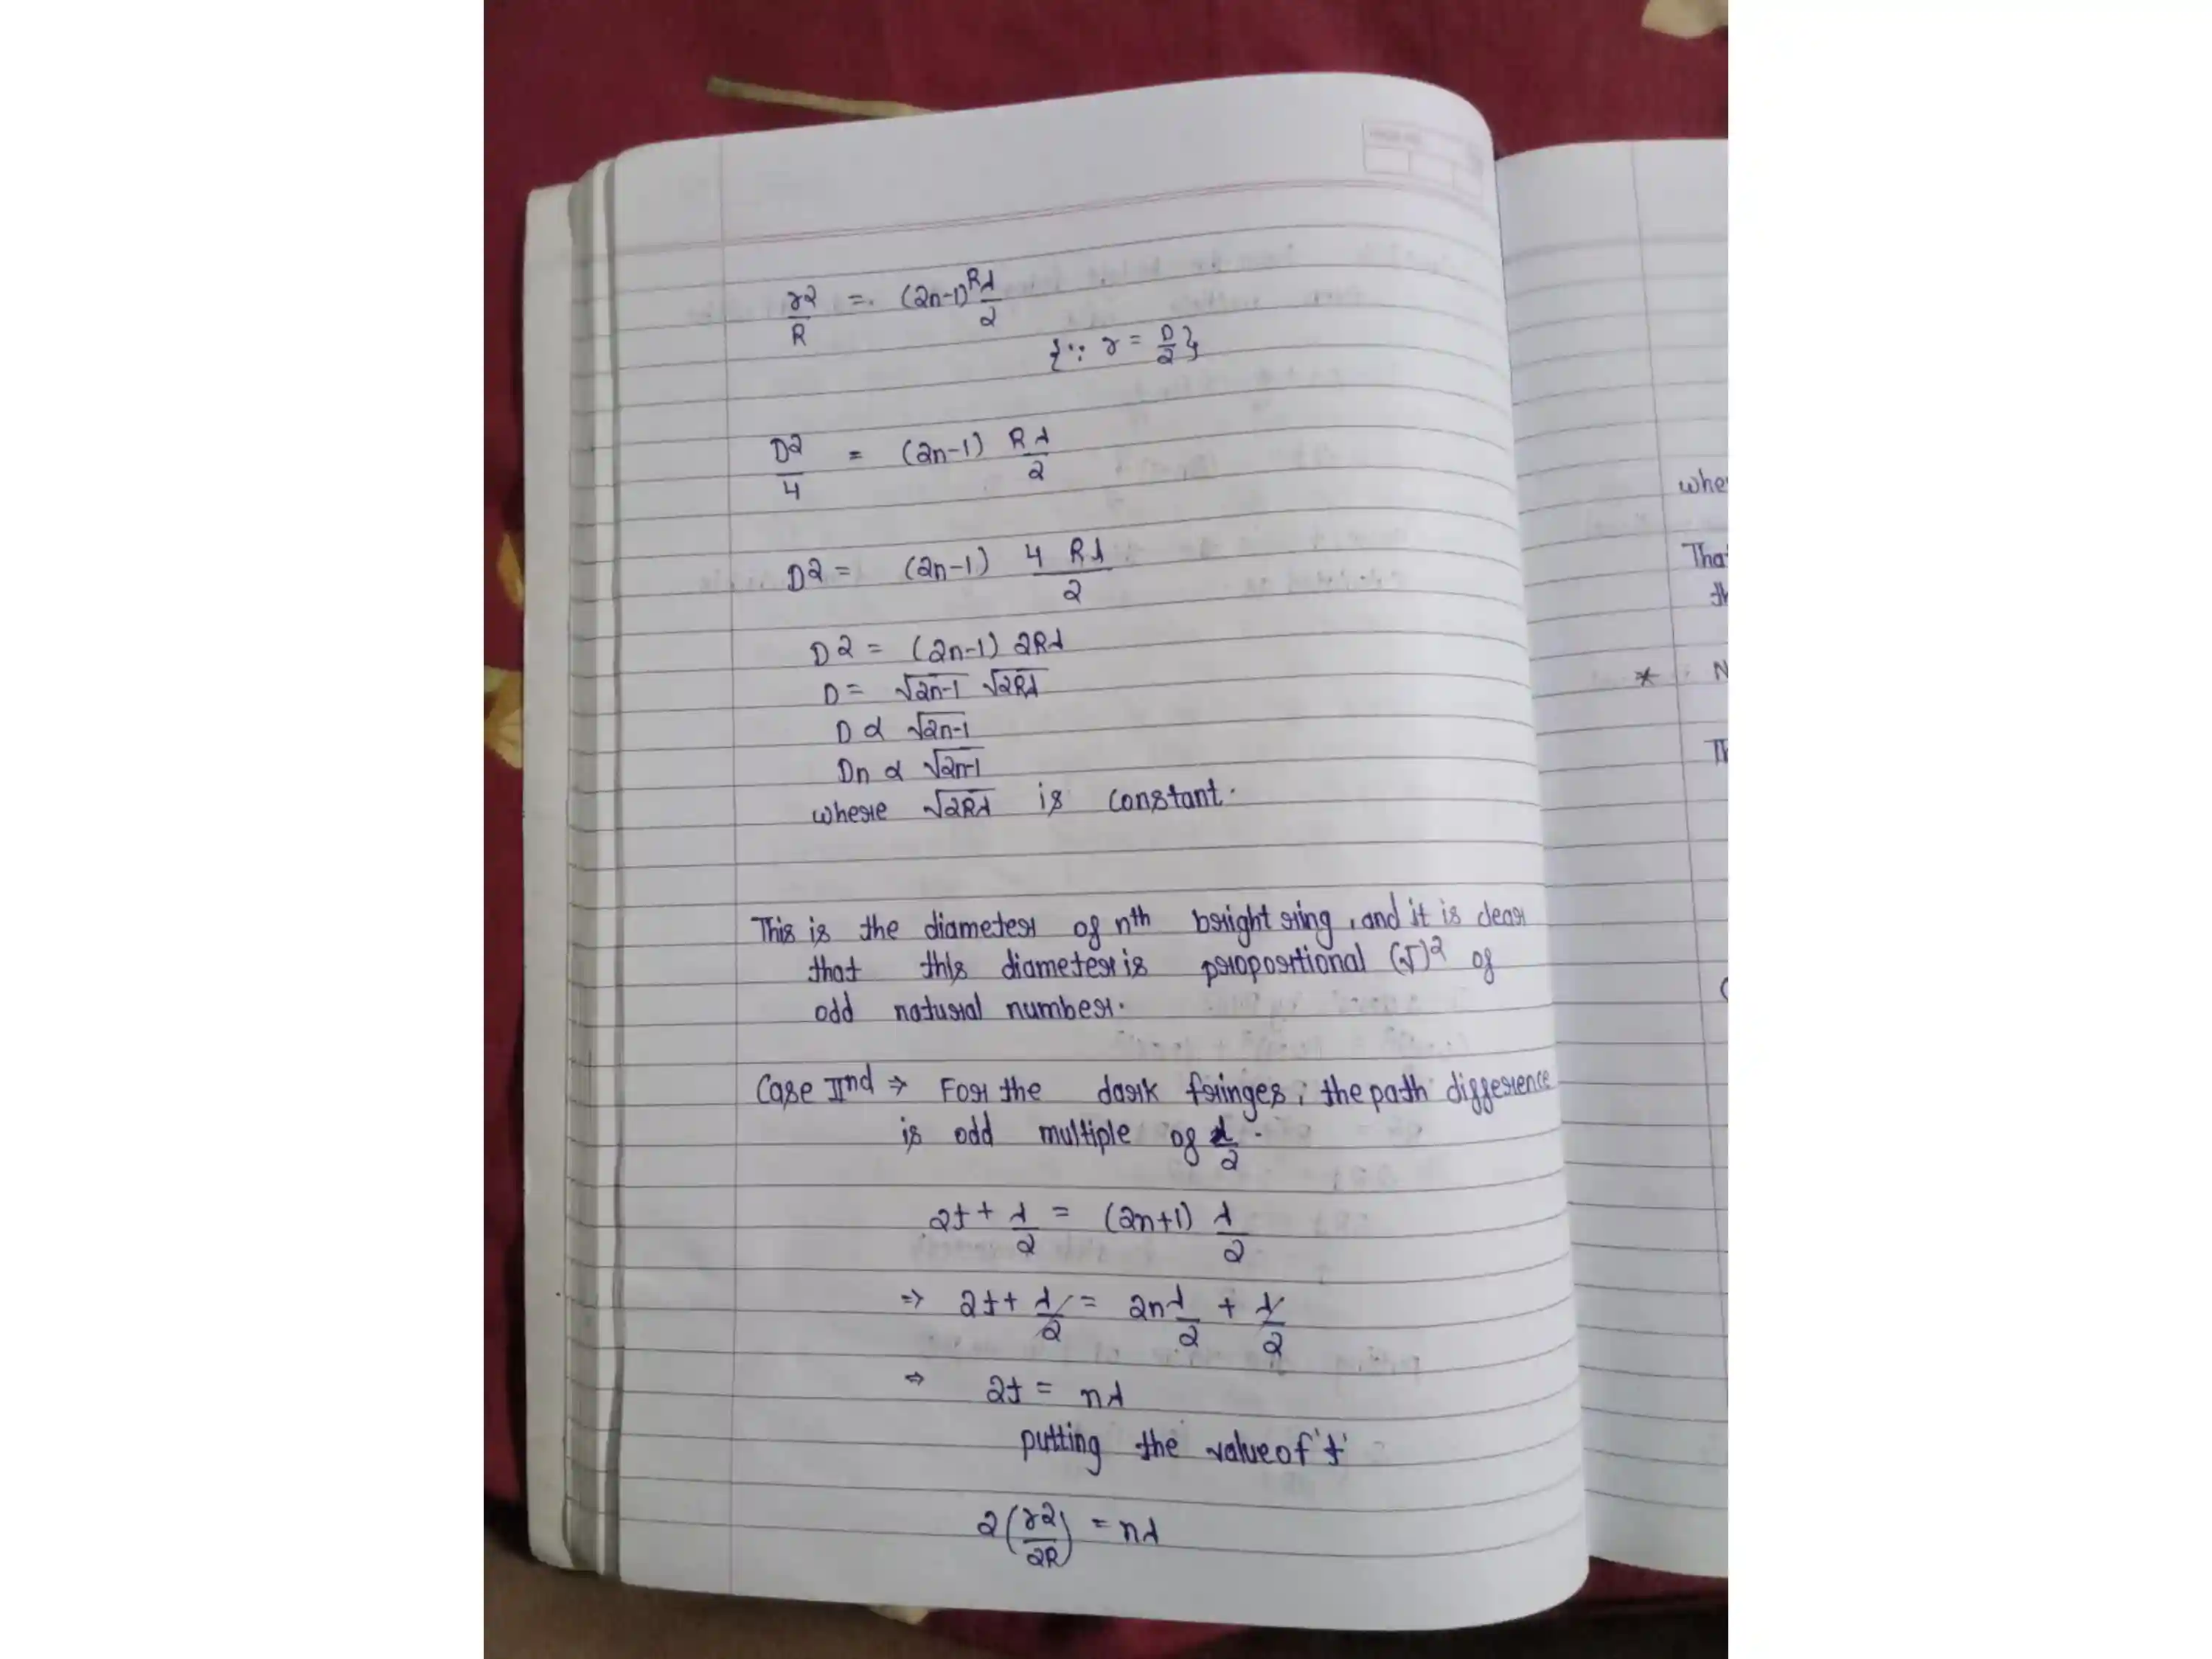 r2/R = (2n-1) Rλ/2
{∵ r = D/2}
D2/4 = (2n-1) Rλ/2
D2 = (2n-1) 4 Rλ/2
D2 = (2n-1) 2Rλ
D = √2n-1 √2Rλ
D α √2n-1
Dn α √2n-1
where √2Rλ is constant.
This is the diameter of nth bright ring, and it is clear
that this diameter is proportional (√)2 of
odd natural number.
Case IInd ⇒ For the dark fringes, the path difference
is odd multiple of λ/2.
2t + λ/2 = (2n+1) λ/2
⇒ 2t + λ/2 = 2nλ/2 + λ/2
⇒ 2t = nλ
putting the value of 't'
2(r2/2R) = nλ
*